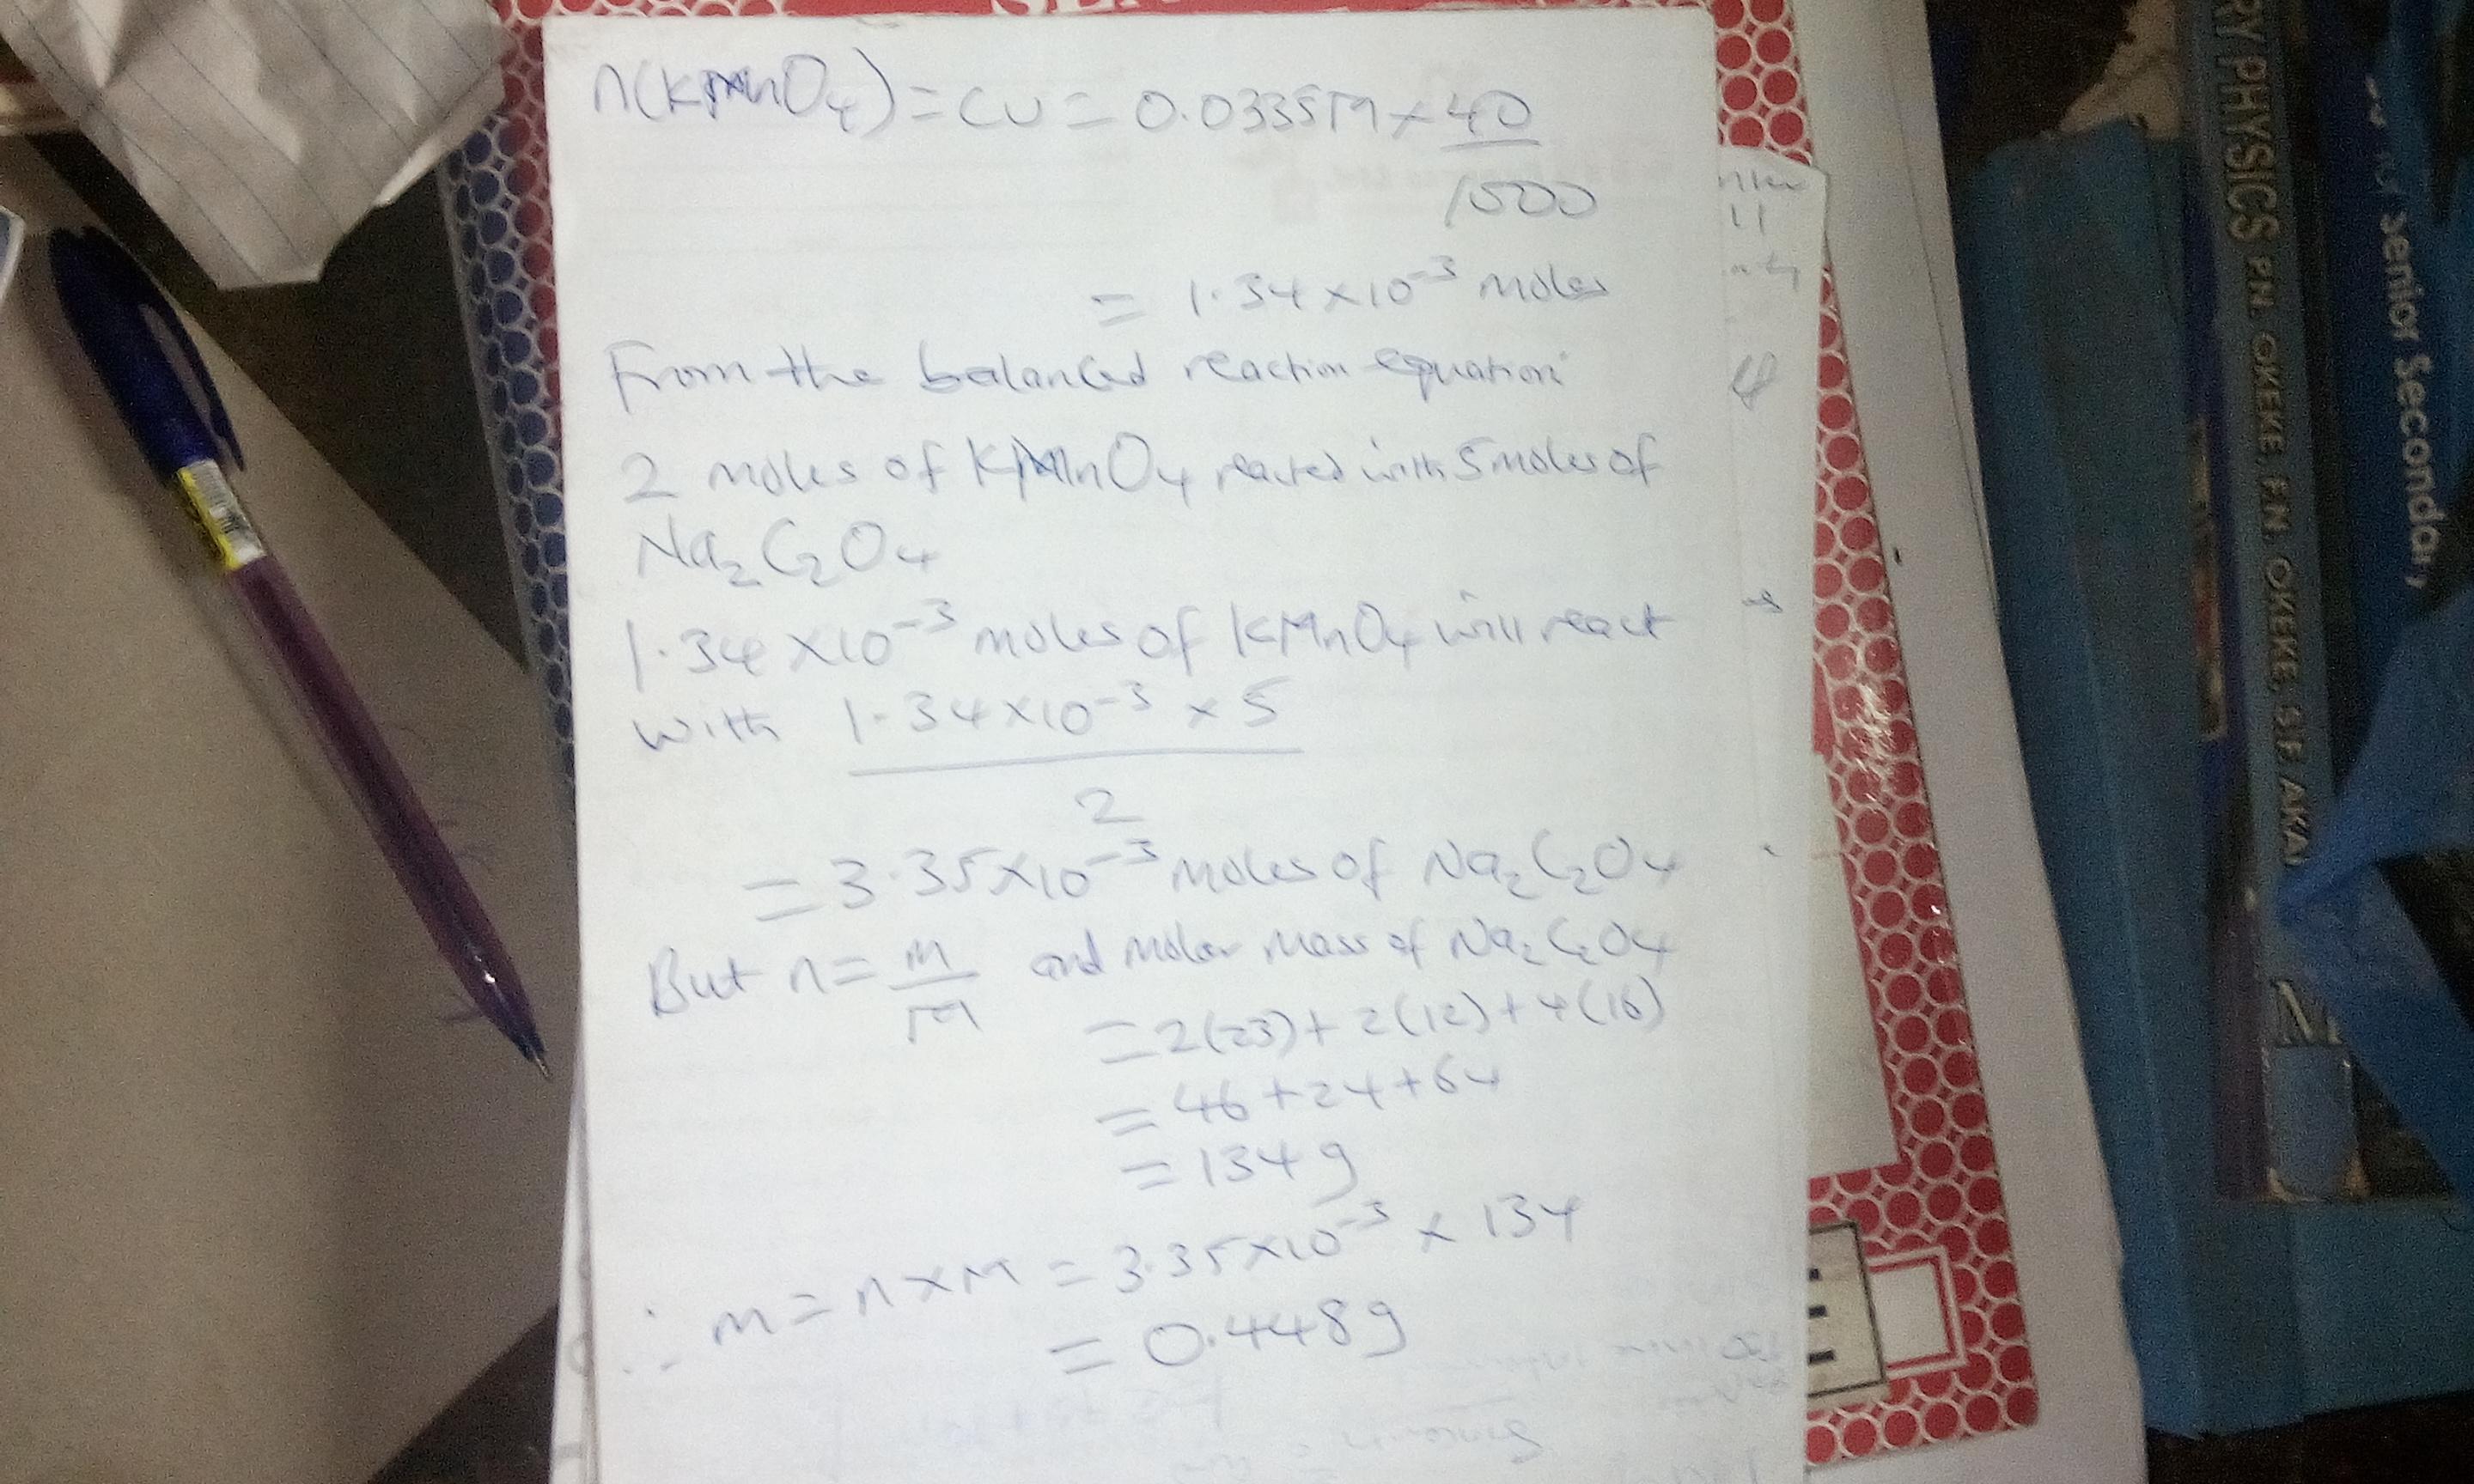 n(KMnO4) = CV = 0.0335M × 40
1000
= 1.34 × 10⁻³ moles
From the balanced reaction equation
2 moles of KMnO4 reacted with 5 moles of
Na₂C₂O₄
1.34 × 10⁻³ moles of KMnO4 will react
with 1.34 × 10⁻³ × 5
2
= 3.35 × 10⁻³ moles of Na₂C₂O₄
But n = m and molar mass of Na₂C₂O₄
M
= 2(23) + 2(12) + 4(16)
= 46 + 24 + 64
= 134 g
∴ m = n × M = 3.35 × 10⁻³ × 134
= 0.448 g
RY PHYSICS P.N. OKEKE, F.N. OKEKE, S.F. AKA
Senior Secondary